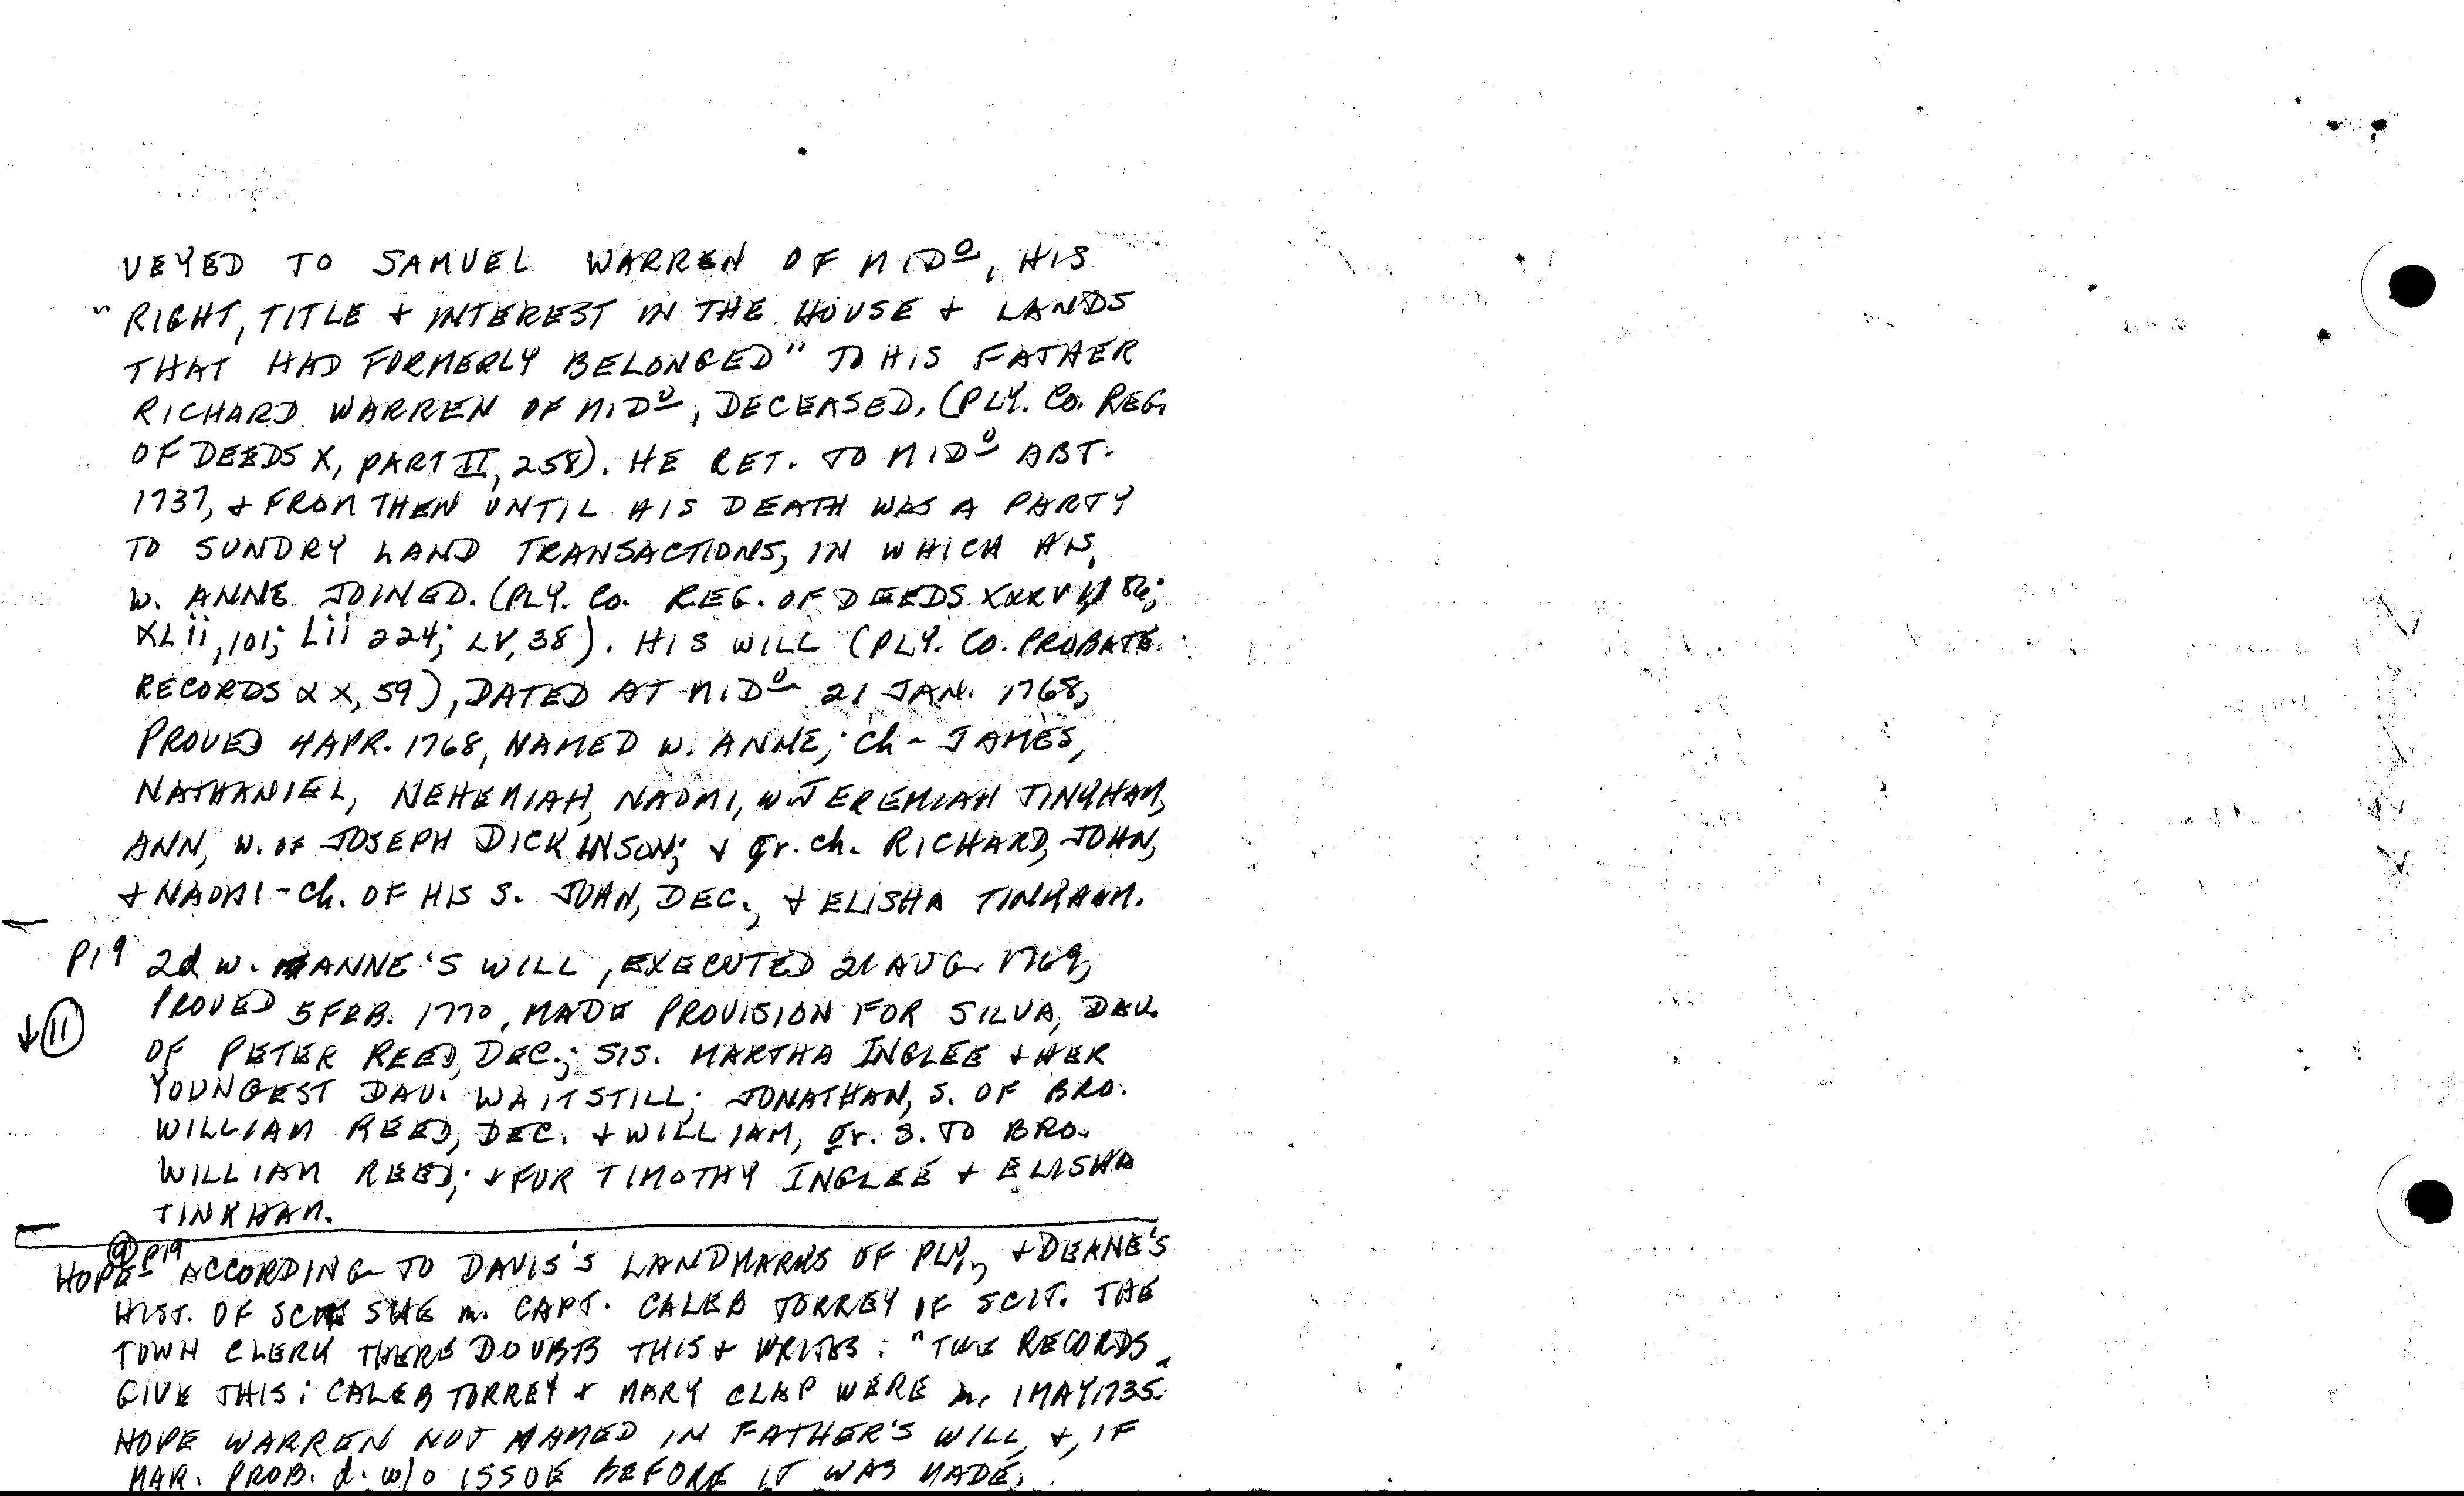 VEYED TO SAMUEL WARREN OF MIDº, HIS
"RIGHT, TITLE + INTEREST IN THE HOUSE + LANDS
THAT HAD FORMERLY BELONGED" TO HIS FATHER
RICHARD WARREN OF MIDº, DECEASED. (PLY. Co. REG.
OF DEEDS X, PART II, 258). HE RET. TO MIDº ABT.
1737, + FROM THEN UNTIL HIS DEATH WAS A PARTY
TO SUNDRY LAND TRANSACTIONS, IN WHICH HIS
W. ANNE JOINED. (PLY. Co. REG. OF DEEDS 86;
XLii, 101; Lii 224; LV, 38). HIS WILL (PLY. CO. PROBATE
RECORDS XX, 59), DATED AT MIDº 21 JAN. 1768,
PROVED 4 APR. 1768, NAMED W. ANNE; Ch - JAMES,
NATHANIEL, NEHEMIAH, NAOMI, W. JEREMIAH TINKHAM,
ANN, W. OF JOSEPH DICKINSON; + gr. ch. RICHARD, JOHN,
+ NAOMI - Ch. OF HIS S. JOHN, DEC., + ELISHA TINKHAM.
P19 2d W. ANNE'S WILL, EXECUTED 21 AUG. 1769,
PROVED 5 FEB. 1770, MADE PROVISION FOR SILVA, DAU.
↓ 11 OF PETER REED, DEC.; SIS. MARTHA INGLEE + HER
YOUNGEST DAU. WAITSTILL; JONATHAN, S. OF BRO.
WILLIAM REED, DEC. + WILLIAM, gr. S. TO BRO.
WILLIAM REED; + FOR TIMOTHY INGLEE + ELISHA
TINKHAM.
P19
HOPE - ACCORDING TO DAVIS'S LANDMARKS OF PLY., + DEANE'S
HIST. OF SCIT. SHE m. CAPT. CALEB TORREY OF SCIT. THE
TOWN CLERK THERE DOUBTS THIS + WRITES: "THE RECORDS
GIVE THIS: CALEB TORREY + MARY CLAP WERE m. 1 MAY 1735.
HOPE WARREN NOT NAMED IN FATHER'S WILL, +, IF
MAR. PROB. d. w/o ISSUE BEFORE IT WAS MADE.